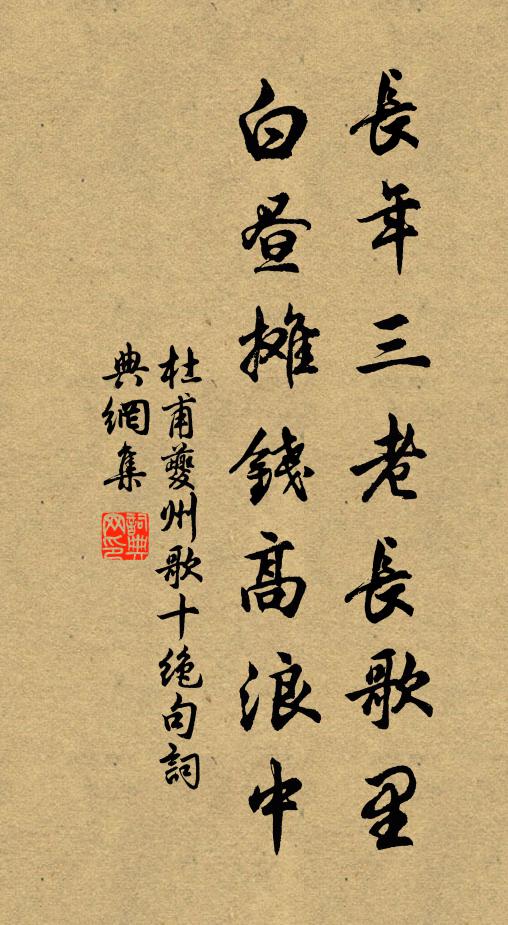 長年三老長歌里
白昼攤錢高浪中
杜甫夔州歌十絶句詞
典網集
詞典
网印